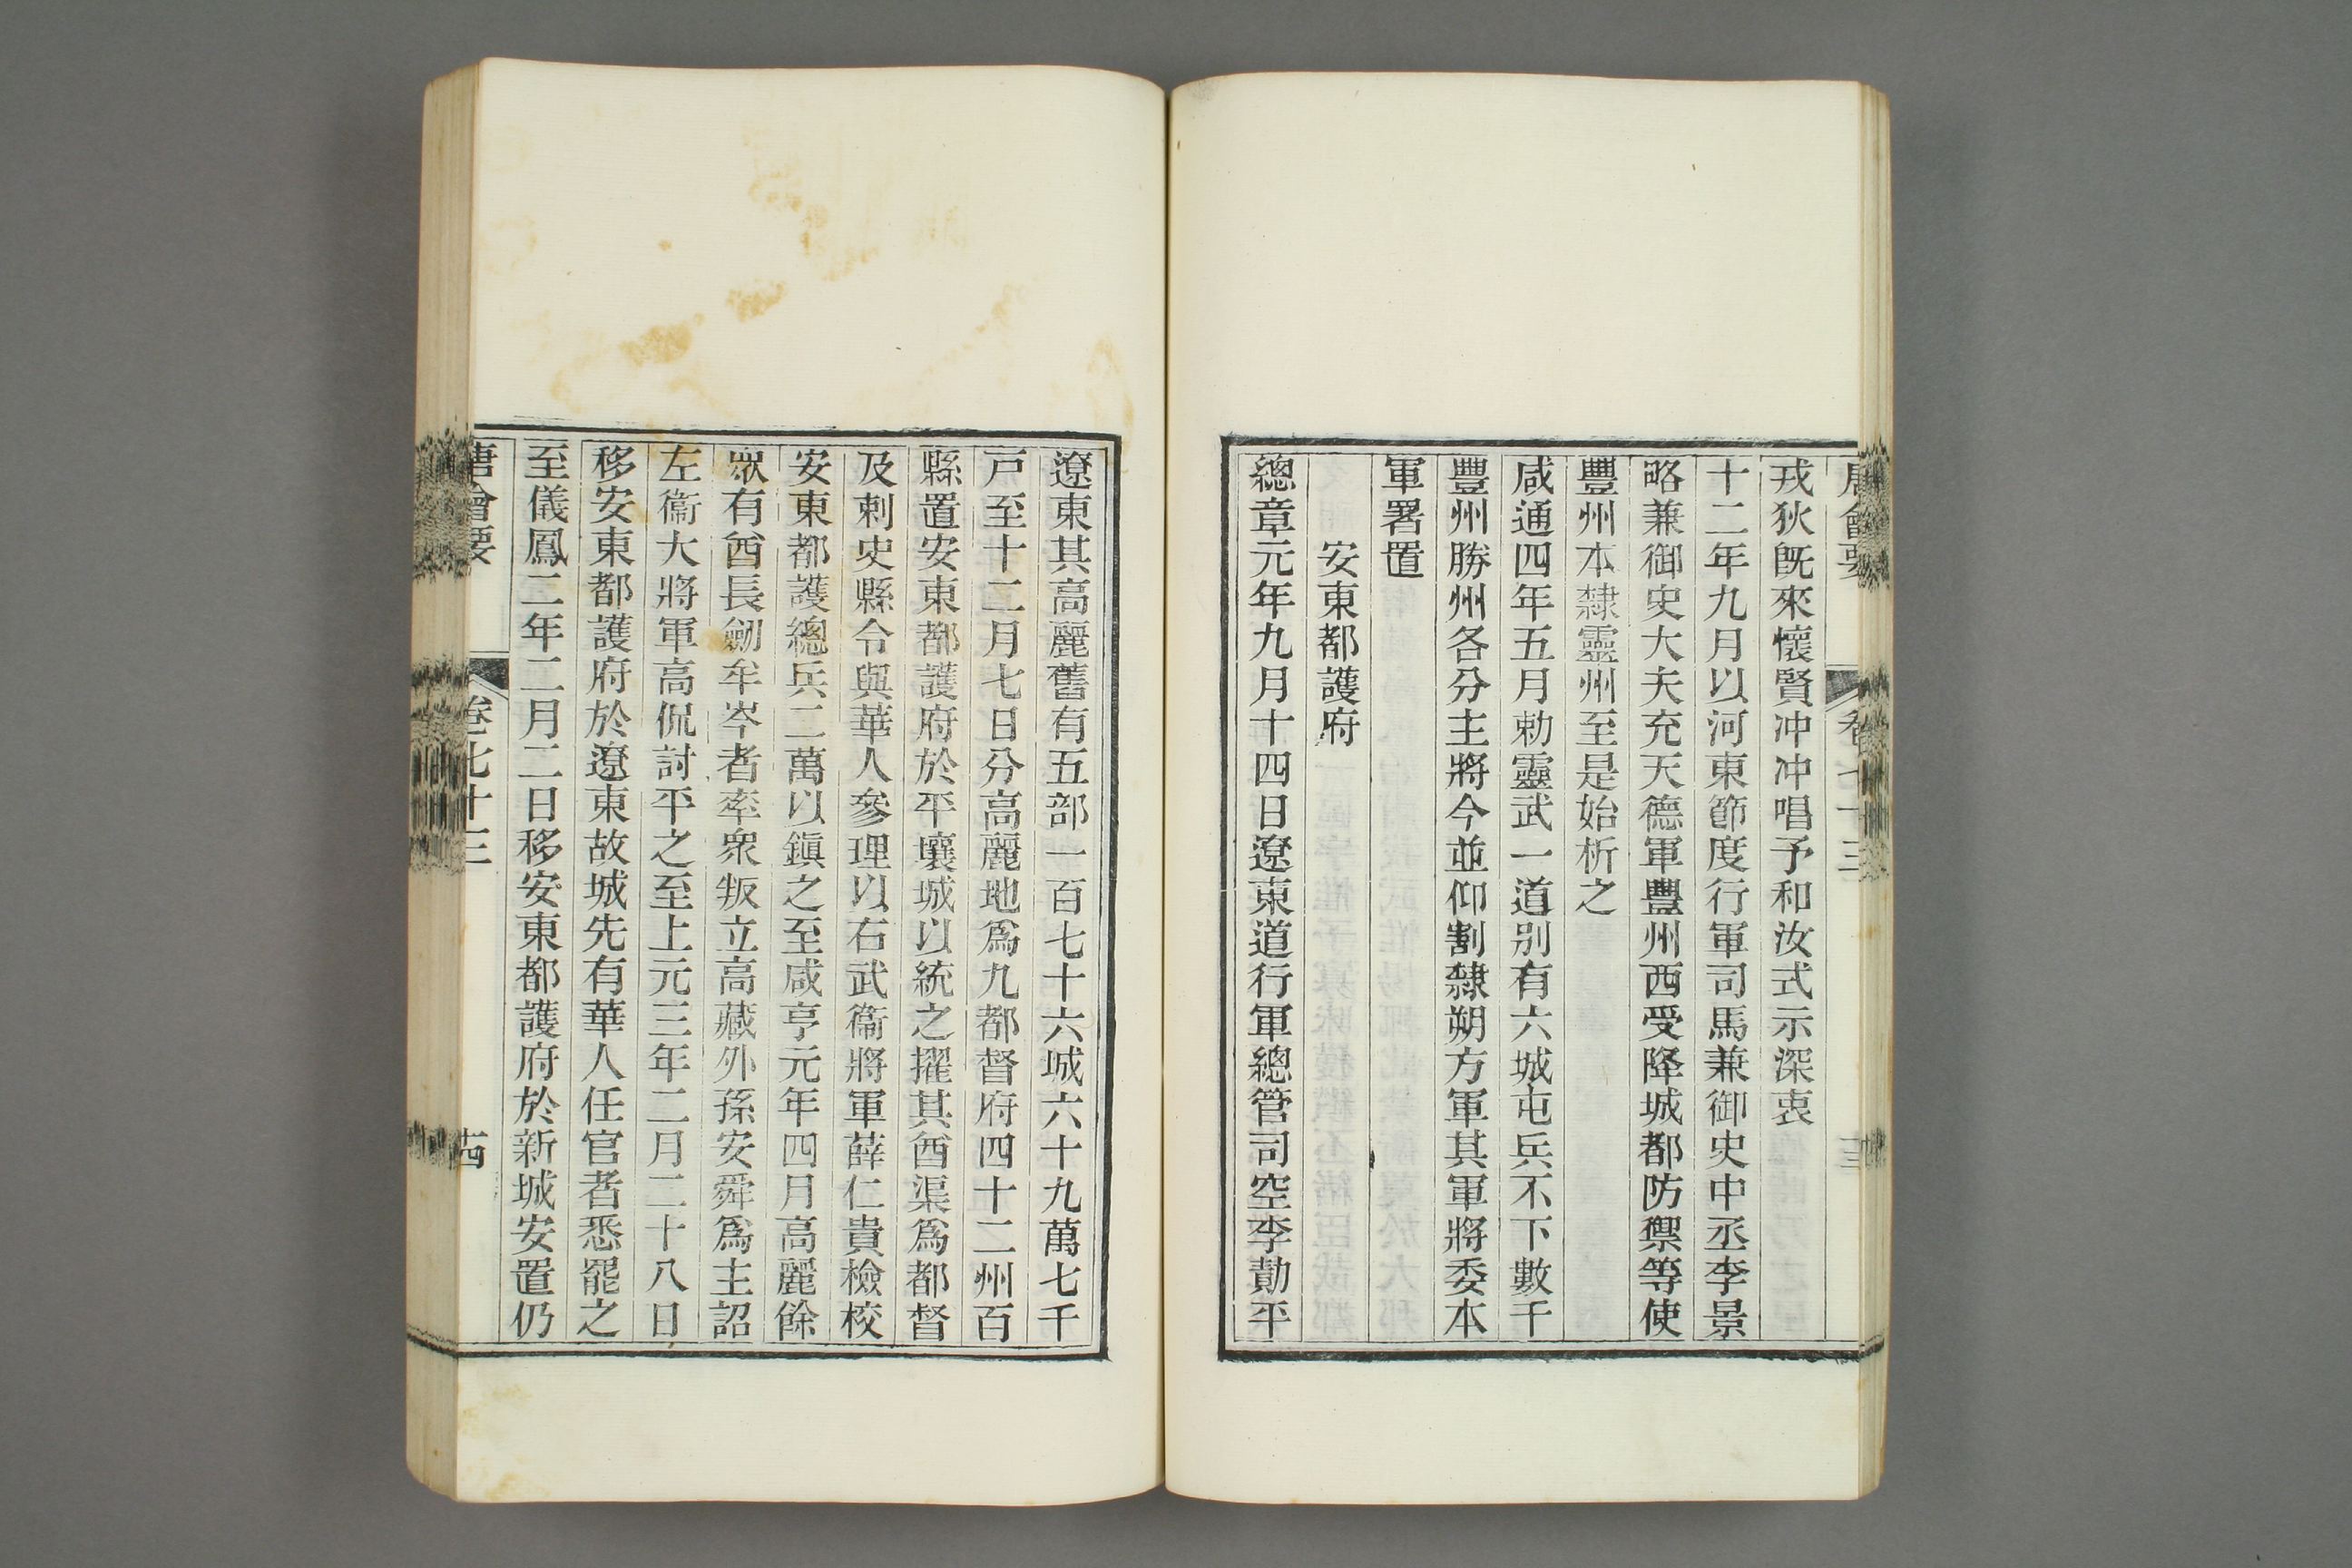 唐會要 卷七十三
戎狄旣來懷賢冲冲唱予和汝式示深衷
十二年九月以河東節度行軍司馬兼御史中丞李景
略兼御史大夫充天德軍豐州西受降城都防禦等使
豐州本隸靈州至是始析之
咸通四年五月勅靈武一道别有六城屯兵不下數千
豐州勝州各分主將今並仰割隸朔方軍其軍將委本
軍署置
安東都護府
總章元年九月十四日遼東道行軍總管司空李勣平
遼東其高麗舊有五部一百七十六城六十九萬七千
戸至十二月七日分高麗地爲九都督府四十二州百
縣置安東都護府於平壤城以統之擢其酋渠爲都督
及刺史縣令與華人參理以右武衞將軍薛仁貴檢校
安東都護總兵二萬以鎭之至咸亨元年四月高麗餘
眾有酋長劒牟岑者率衆叛立高藏外孫安舜爲主詔
左衞大將軍高侃討平之至上元三年二月二十八日
移安東都護府於遼東故城先有華人任官者悉罷之
至儀鳳二年二月二日移安東都護府於新城安置仍
唐會要 卷七十三 十四